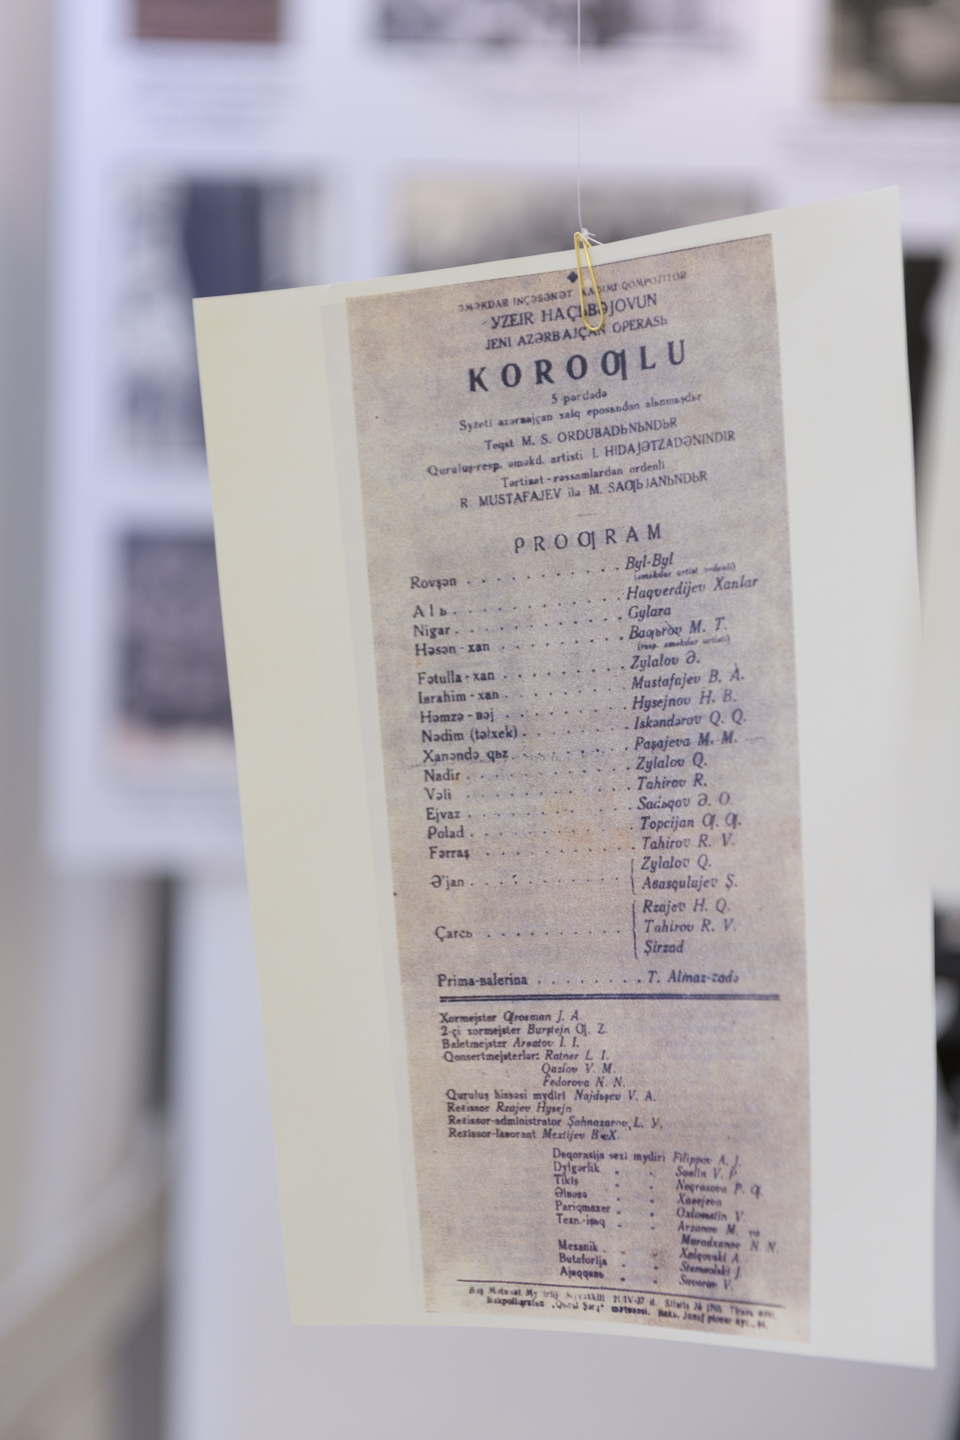 ƏMƏKDAR INÇƏSƏNƏT XADIMI QOMPOZITOR
YZEIR HAÇЬBƏJOVUN
JENI AZƏRBAJÇAN OPERASЬ
KOROƢLU
5 pərdədə
Syƶeti azərʙajçan xalq eposundan alьnmьşdьr
Teqst M. S. ORDUBADЬNЬNDЬR
Quruluş-resp. əməkd. artisti I. HIDAJƏTZADƏNINDIR
Tərtiʙat-rəssamlardan ordenli
R. MUSTAFAJEV ilə M. SAƢЬJANЬNDЬR
PROƢRAM
Rovşən . . . . . . . . . . Byl-Byl
(əməkdar artist ordenli)
Alь . . . . . . . . . . Haqverdijev Xanlar
Nigar . . . . . . . . . . Gylara
Həsən-xan . . . . . . . . . . Baƣьrov M. T.
(resp. əməkdar artisti)
Fətulla-xan . . . . . . . . . . Zylalov Ə.
Iʙrahim-xan . . . . . . . . . . Mustafajev B. A.
Həmzə-ʙəj . . . . . . . . . . Hysejnov H. B.
Nədim (təlxek) . . . . . . . . . . Iskəndərov Q. Q.
Xanəndə qьz . . . . . . . . . . Paşajeva M. M.
Nadir . . . . . . . . . . Zylalov Q.
Vəli . . . . . . . . . . Tahirov R.
Ejvaz . . . . . . . . . . Sadьqov Ə. O.
Polad . . . . . . . . . . Topcijan Ƣ. Ƣ.
Fərraş . . . . . . . . . . Tahirov R. V.
Ə'jan . . . . . . . . . . Zylalov Q.
Aʙasqulujev Ş.
Çarcь . . . . . . . . . . Rzajev H. Q.
Tahirov R. V.
Şirzad
Prima-ʙalerina . . . . . . . . Т. Almaz-zadə
Xormejster Ƣrosman J. A.
2-çi xormejster Burştejn Ƣ. Z.
Baletmejster Arʙatov I. I.
Qonsertmejsterlər: Ratner L. I.
Qazlov V. M.
Fedorova N. N.
Quruluş hissəsi mydiri Najdьşev V. A.
Reƶissor Rzajev Hysejn
Reƶissor-administrator Şahnazarov L. Y.
Reƶissor-laʙorant
Deqorasija sexi mydiri Filippov A. J.
Dylgərlik „ „ Saʙlin V. P.
Tikiş „ „ Neqrasova P. Ƣ.
Əlʙəsə „ „
Pariqmaxer „ „ Oxlomʙtin V.
Texn.-işıq „ „ Arzanov M. və
Muradxanov N. N.
Mexanik „ „ A.
Butaforija „ „ J.
Ajaqqaʙь „ „
21/IV-37
„Qьzьl Şərq" mətʙəəsi.